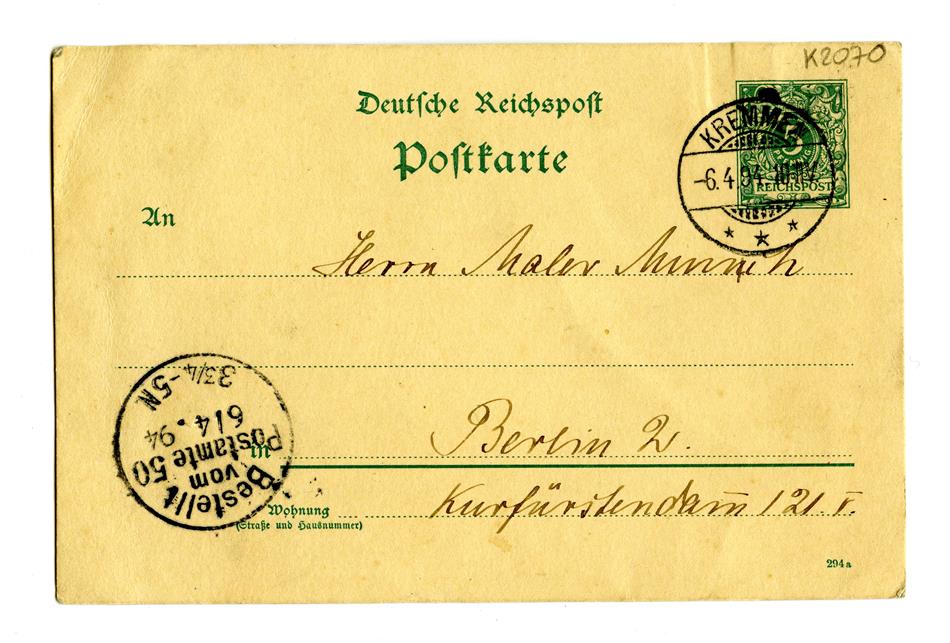 K2070
Deutsche Reichspost
Postkarte
KREMMEN
-6.4.94
REICHSPOST
An
Herrn Maler
Berlin W.
in
Kurfürstendam̅ 121 I.
Wohnung
(Straße und Hausnummer)
Bestellt
vom
Postamte 50
6/4.94
3 3/4-5N
294a